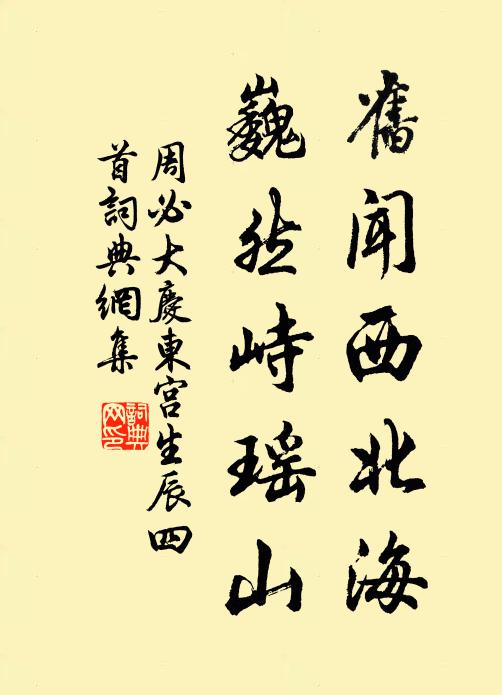 舊聞西北海
巍然峙瑤山
周必大慶東宮生辰四
首詞典網集
詞典網印